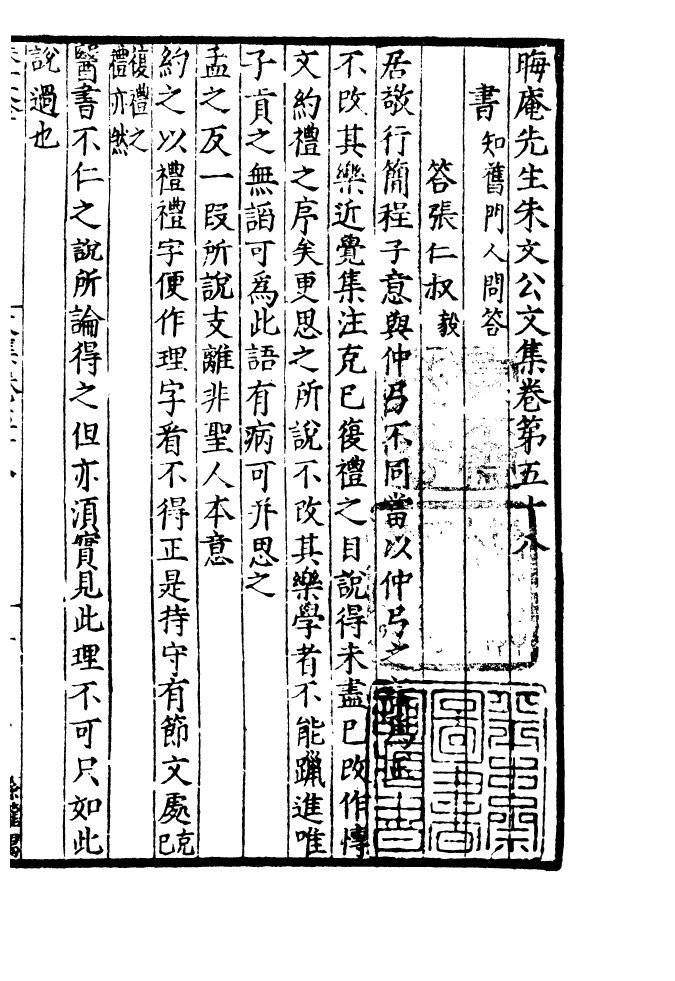 晦庵先生朱文公文集卷第五十八
書知舊門人問答
答張仁叔毅
居敬行簡程子意與仲弓不同當以仲弓之
不改其樂近覺集注克已復禮之目說得未盡已改作愽
文約禮之序矣更思之所說不改其樂學者不能躐進唯
子貢之無謟可為此語有病可并思之
孟之反一段所說支離非聖人本意
約之以禮禮字便作理字看不得正是持守有節文處克已
復禮之
禮亦然
醫書不仁之說所論得之但亦湏實見此理不可只如此
說過也